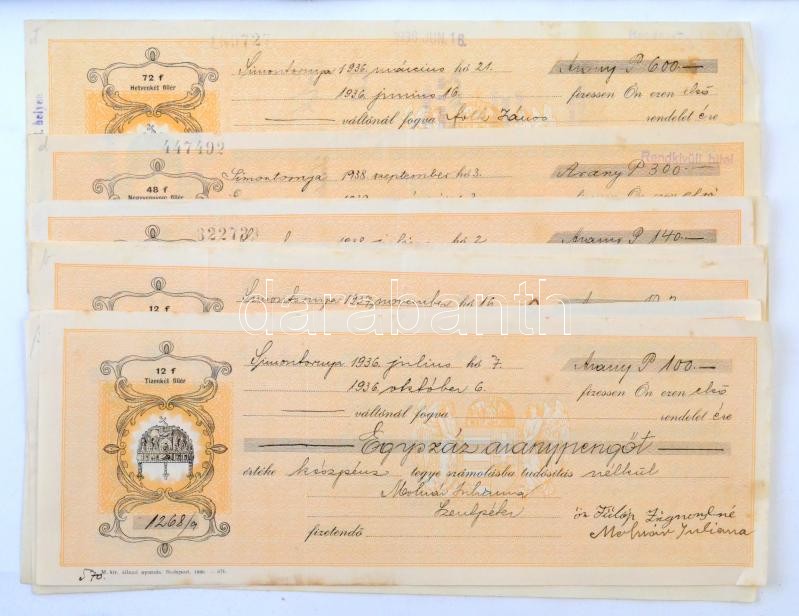 180727
1936 JUN. 16.
72 f
Hetvenkét fillér
Simontornya 1936. március hó 21.
Arany P 600.—
1936. junius 16.
fizessen Ön ezen első
váltónál fogva Tóth János
rendelet ére
447492
Rendkívüli hitel
48 f
Negyvennyolc fillér
Simontornya 1938. szeptember hó 3.
Arany P 300.—
hó 2.
Arany P 140.—
12 f
Simontornya 1937. november hó 16.
darabanth
12 f
Tizenkét fillér
Simontornya 1936. julius hó 7.
Arany P 100.—
1936. október 6.
fizessen Ön ezen első
váltónál fogva
rendelet ére
Egyszáz aranypengőt
értéke készpénz tegye számolásba tudósítás nélkül
Molnár Julianna
1268/a
fizetendő
öz Fülöp Zsigmondné
Molnár Juliana
570.
M. kir. állami nyomda. Budapest.